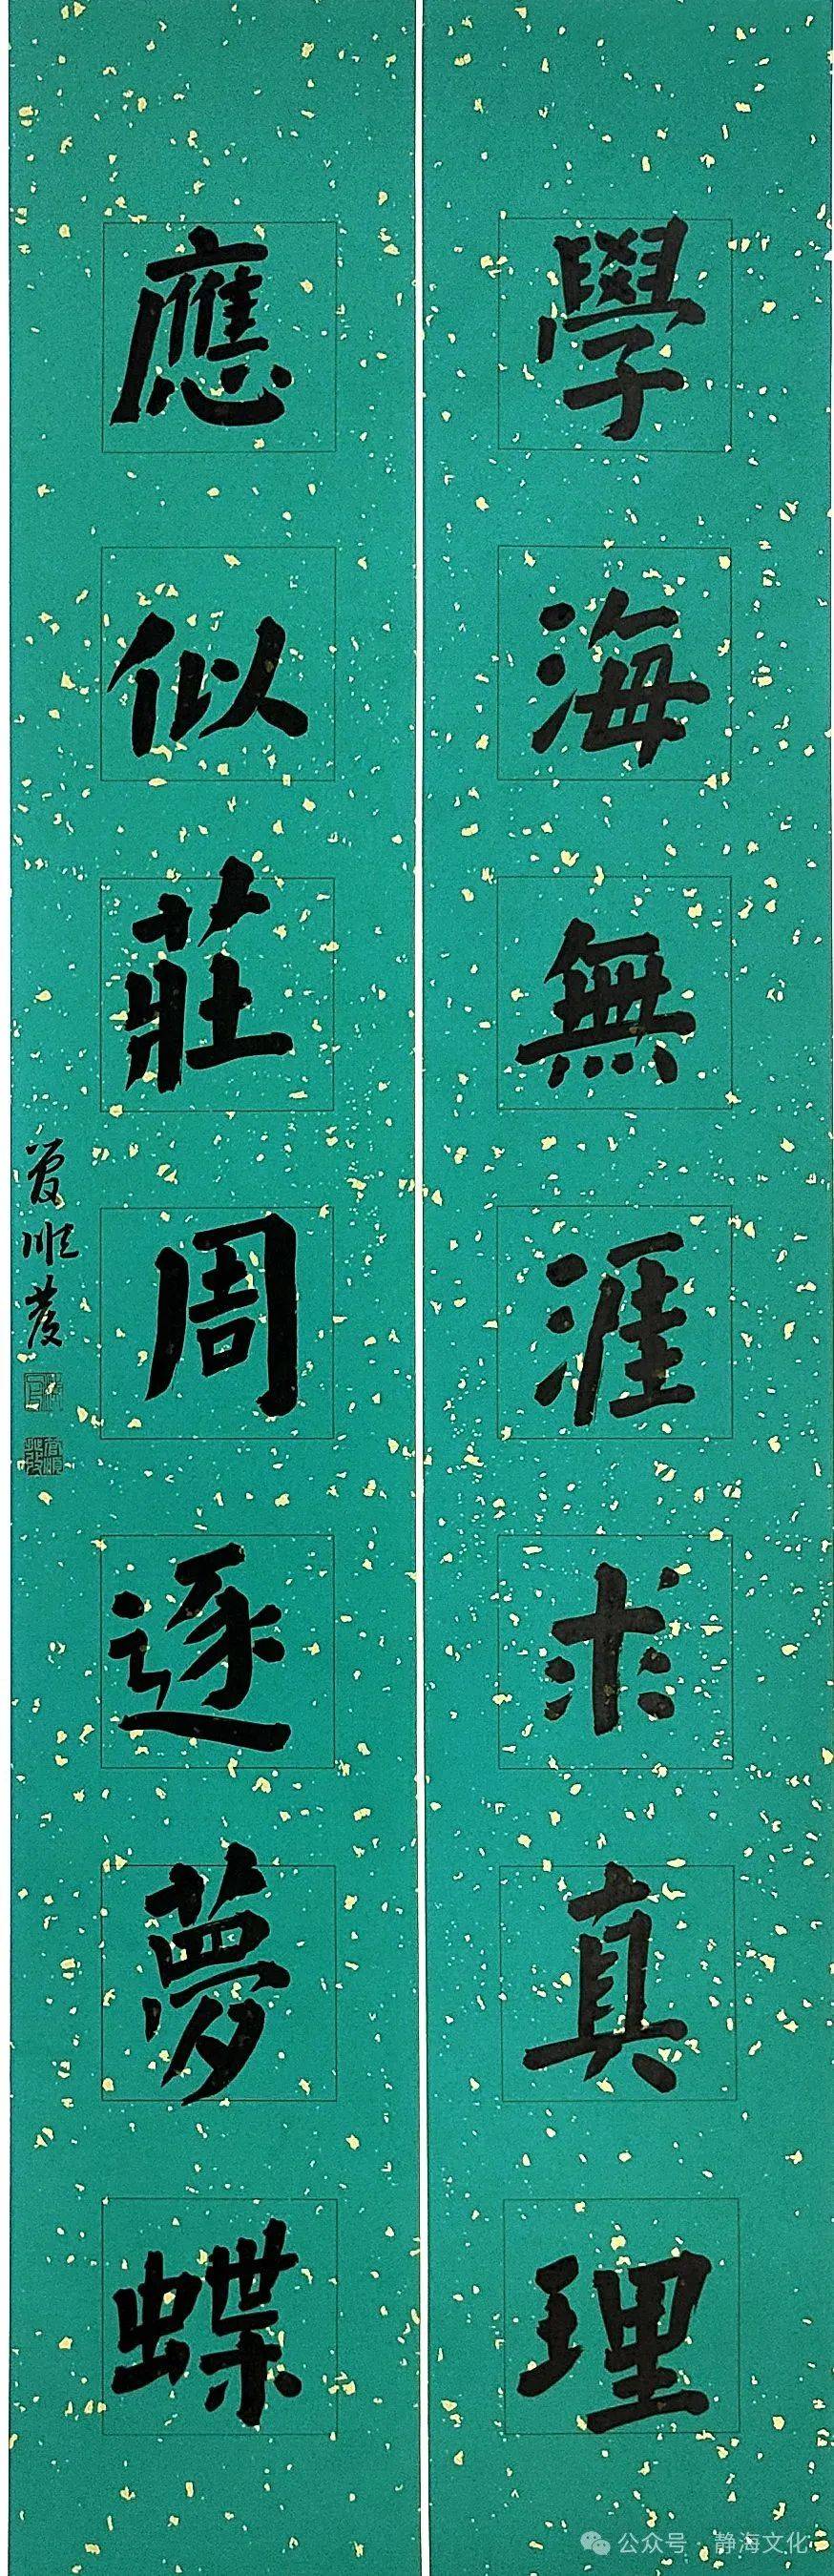 學海無涯求真理
應似莊周逐夢蝶
公众号 · 静海文化